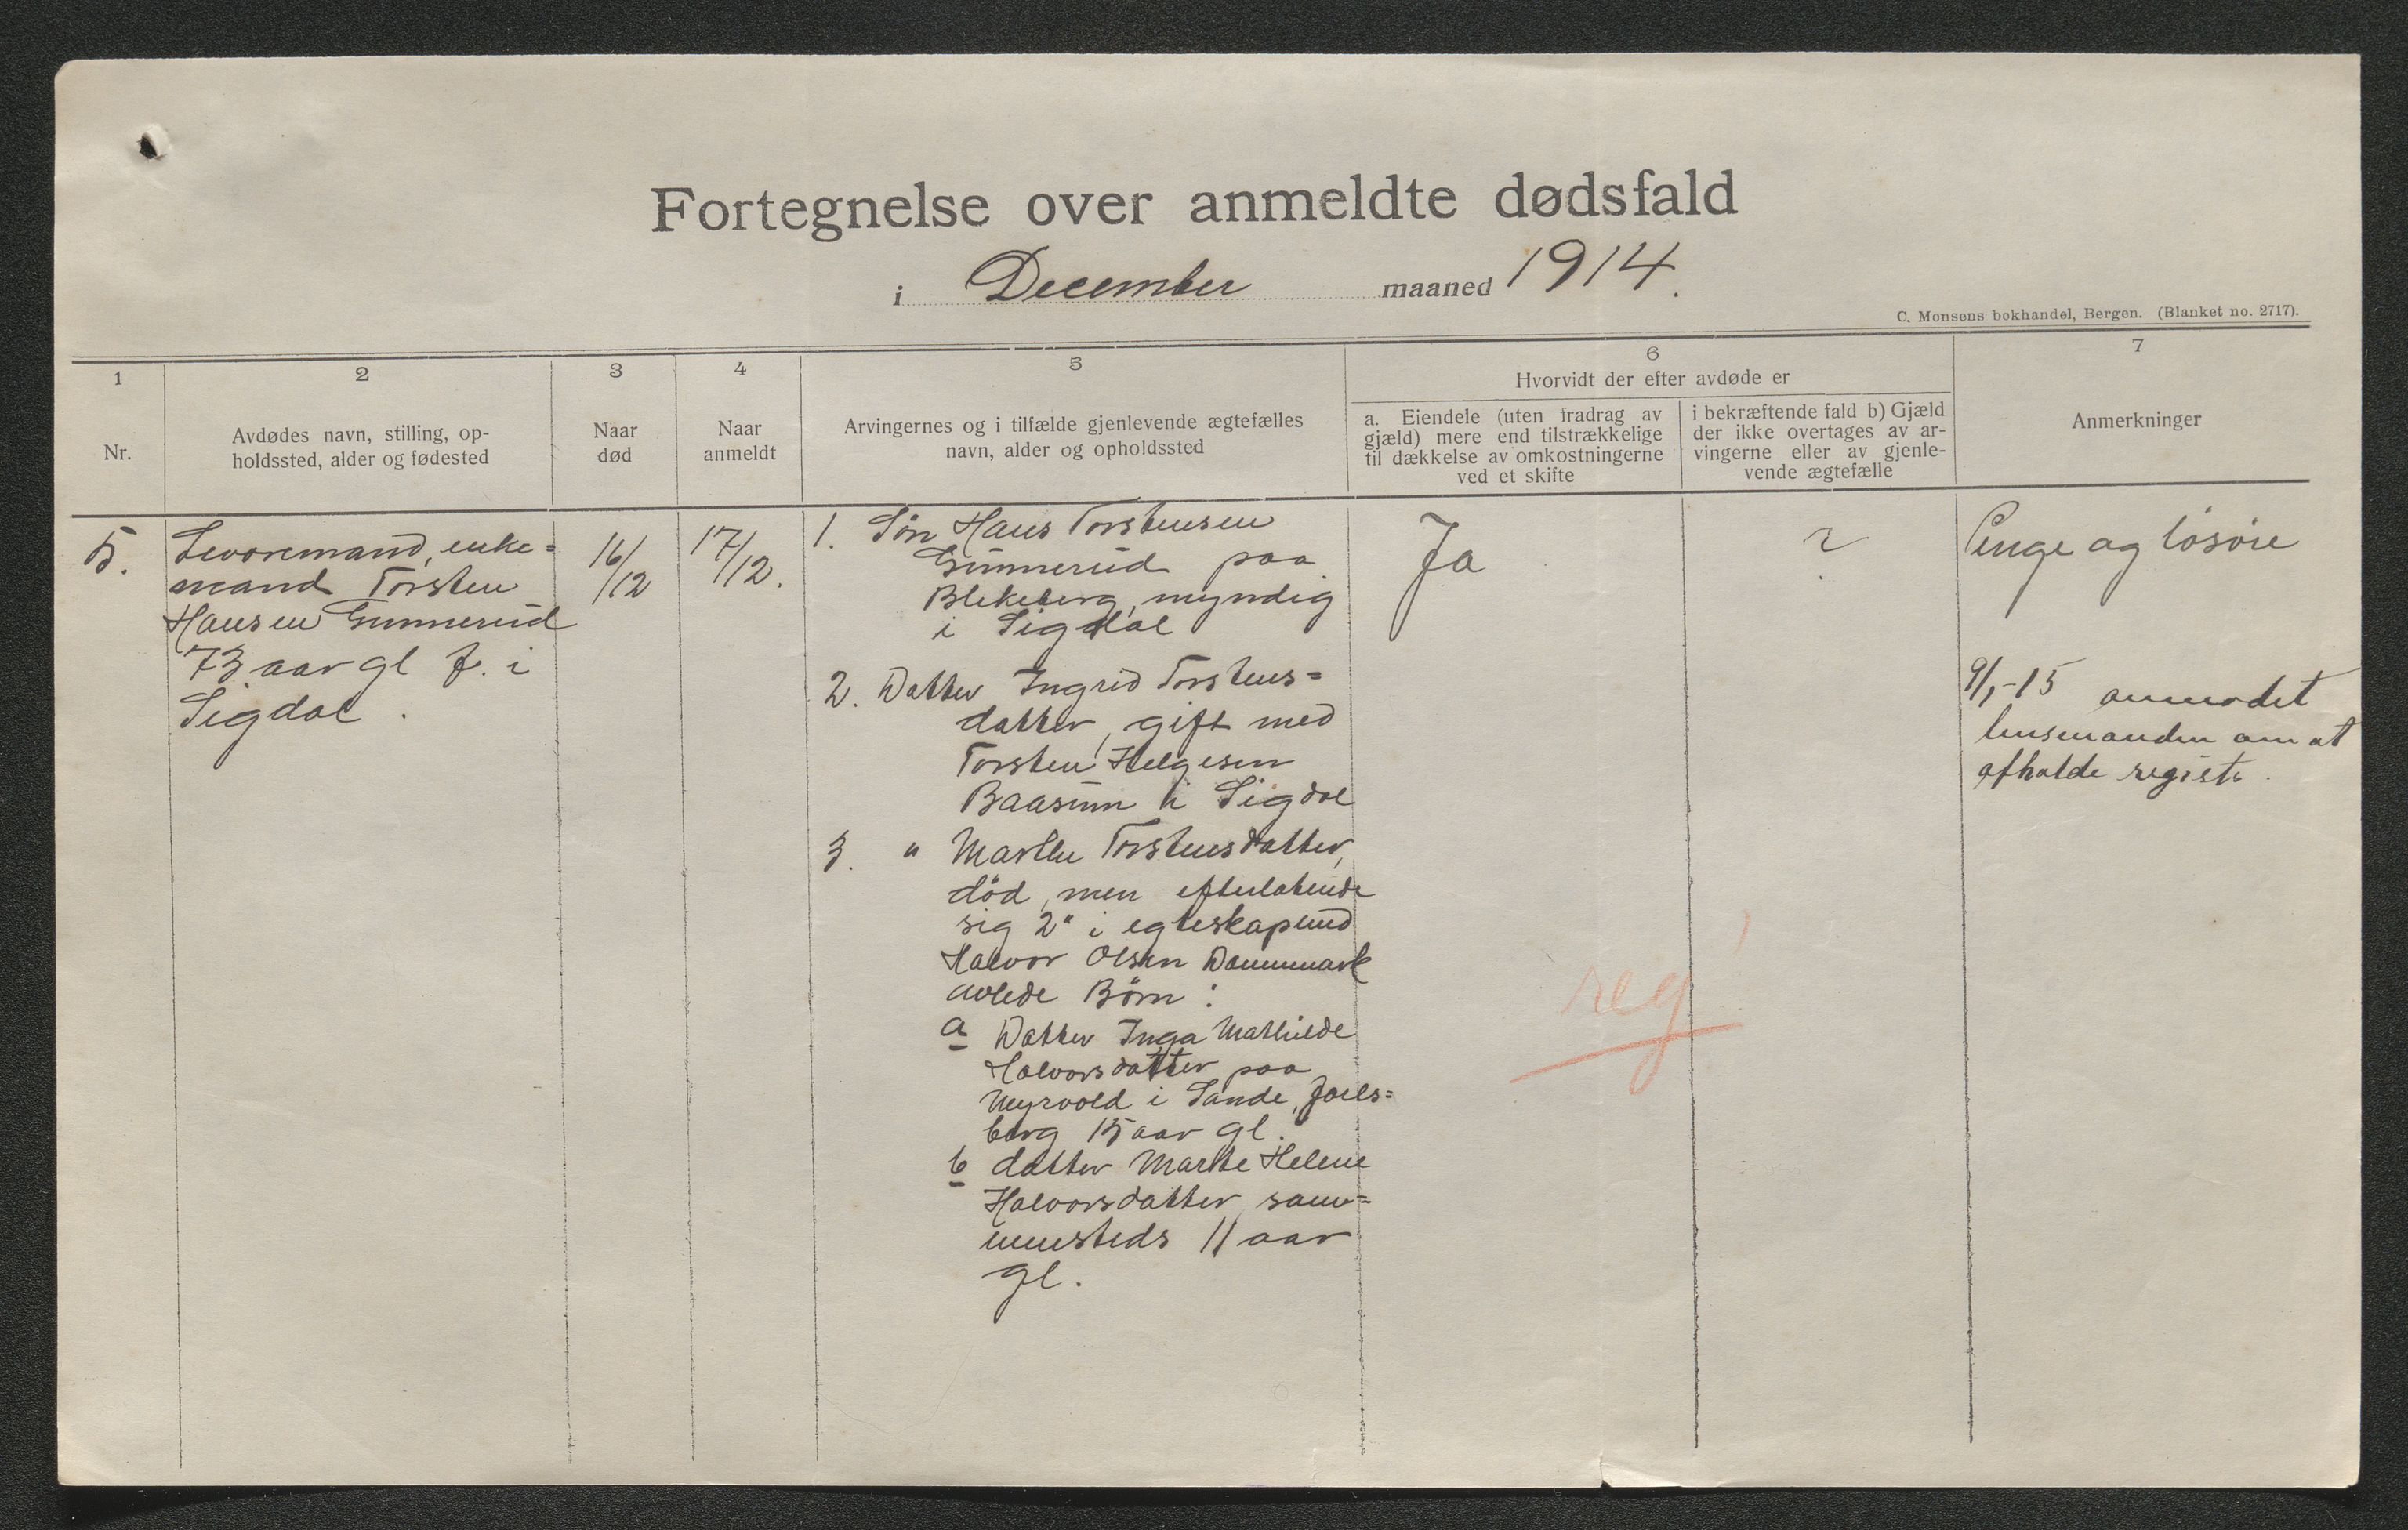 Fortegnelse over anmeldte dødsfald
i December maaned 1914.
C. Monsens bokhandel, Bergen. (Blanket no. 2717).
1
Nr.
2
Avdødes navn, stilling, op-
holdssted, alder og fødested
3
Naar
død
4
Naar
anmeldt
5
Arvingernes og i tilfælde gjenlevende ægtefælles
navn, alder og opholdssted
6
Hvorvidt der efter avdøde er
a. Eiendele (uten fradrag av
gjæld) mere end tilstrækkelige
til dækkelse av omkostningerne
ved et skifte
i bekræftende fald b) Gjæld
der ikke overtages av ar-
vingerne eller av gjenle-
vende ægtefælle
7
Anmerkninger
5.
Levoremand, enke=
mand Torsten
Hansen Gunnerud
73 aar gl f. i
Sigdal.
16/12
17/12.
1. Søn Hans Torstensen
Gunnerud paa
Blekeberg, myndig
i Sigdal
2. Datter Ingrid Torstens=
datter, gift med
Torsten Helgesen
Baasum i Sigdal
3. " Marthe Torstensdatter,
død, men efterlatende
sig 2" i egteskap med
Halvor Olsen Dammmark
avlede Børn:
a Datter Inga Mathilde
Halvorsdatter paa
Myrvold i Sande, Jarls=
berg 15 aar gl.
b datter Marthe Helene
Halvorsdatter sam=
mensteds 11 aar
gl.
Ja
?
Penge og løsøre
9/1-15 anmodet
lensmanden om at
afholde registr.
reg